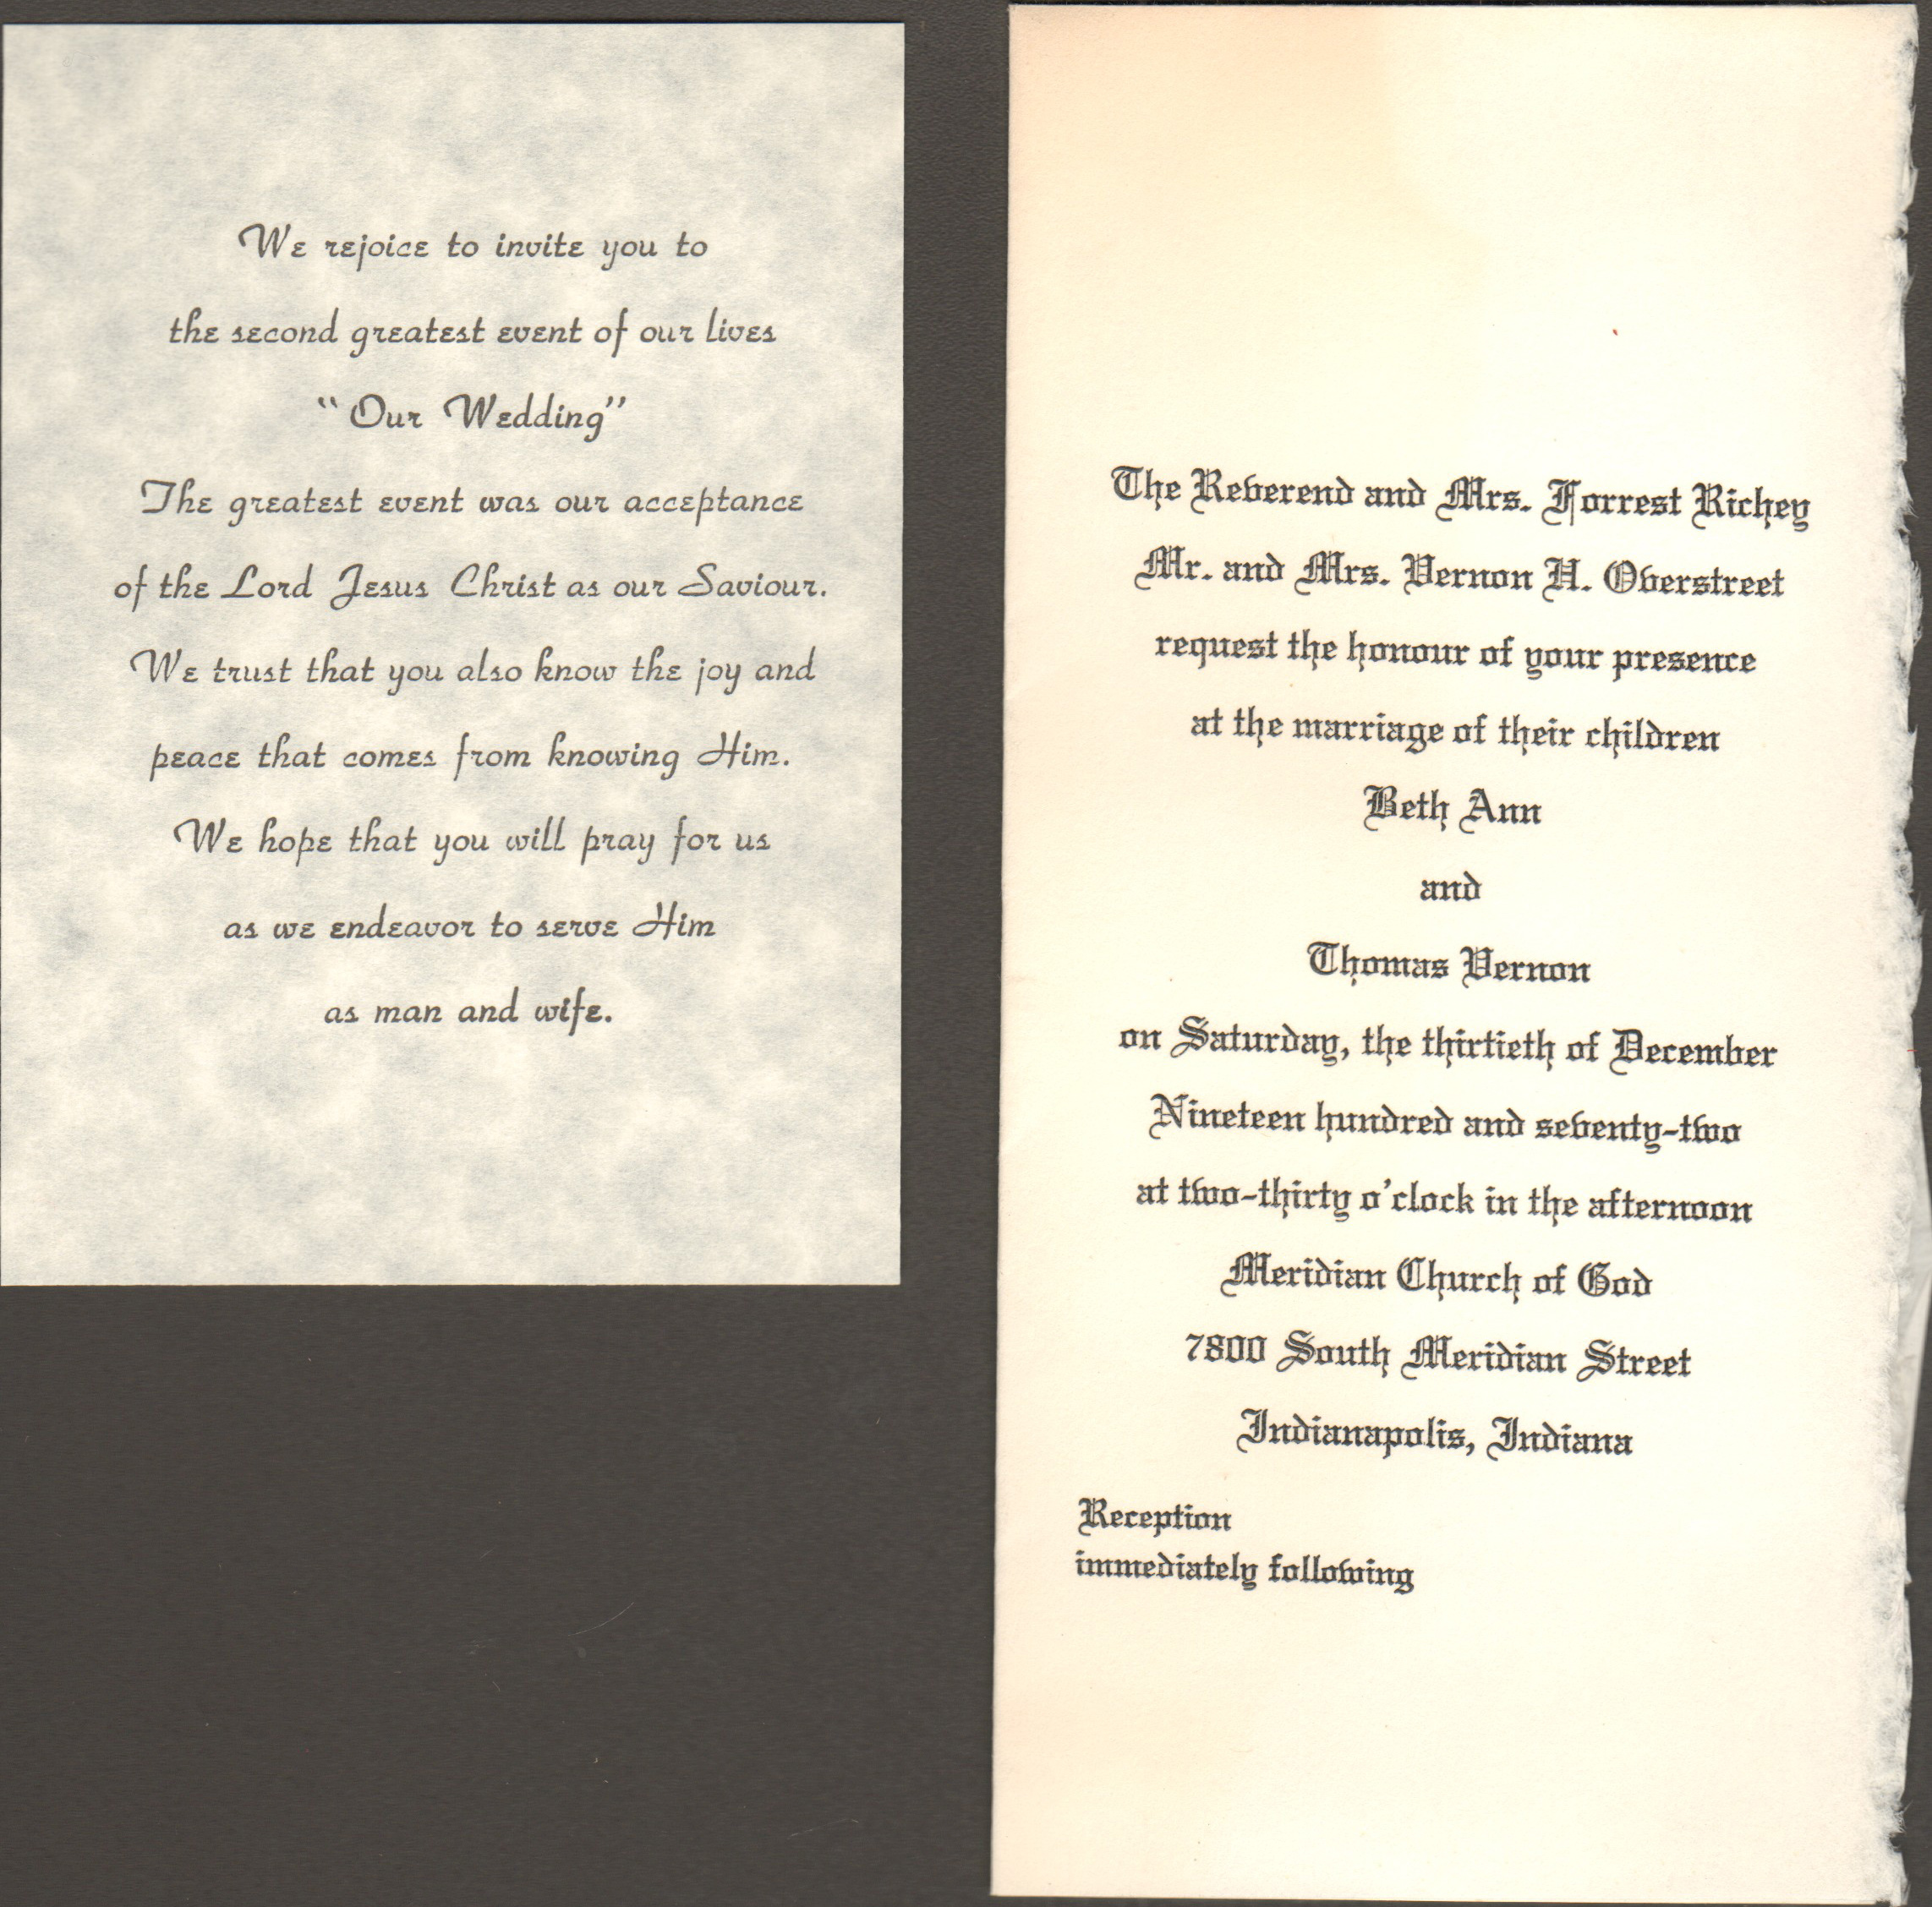 We rejoice to invite you to
the second greatest event of our lives
“Our Wedding”
The greatest event was our acceptance
of the Lord Jesus Christ as our Saviour.
We trust that you also know the joy and
peace that comes from knowing Him.
We hope that you will pray for us
as we endeavor to serve Him
as man and wife.
The Reverend and Mrs. Forrest Richey
Mr. and Mrs. Vernon H. Overstreet
request the honour of your presence
at the marriage of their children
Beth Ann
and
Thomas Vernon
on Saturday, the thirtieth of December
Nineteen hundred and seventy-two
at two-thirty o'clock in the afternoon
Meridian Church of God
7800 South Meridian Street
Indianapolis, Indiana
Reception
immediately following